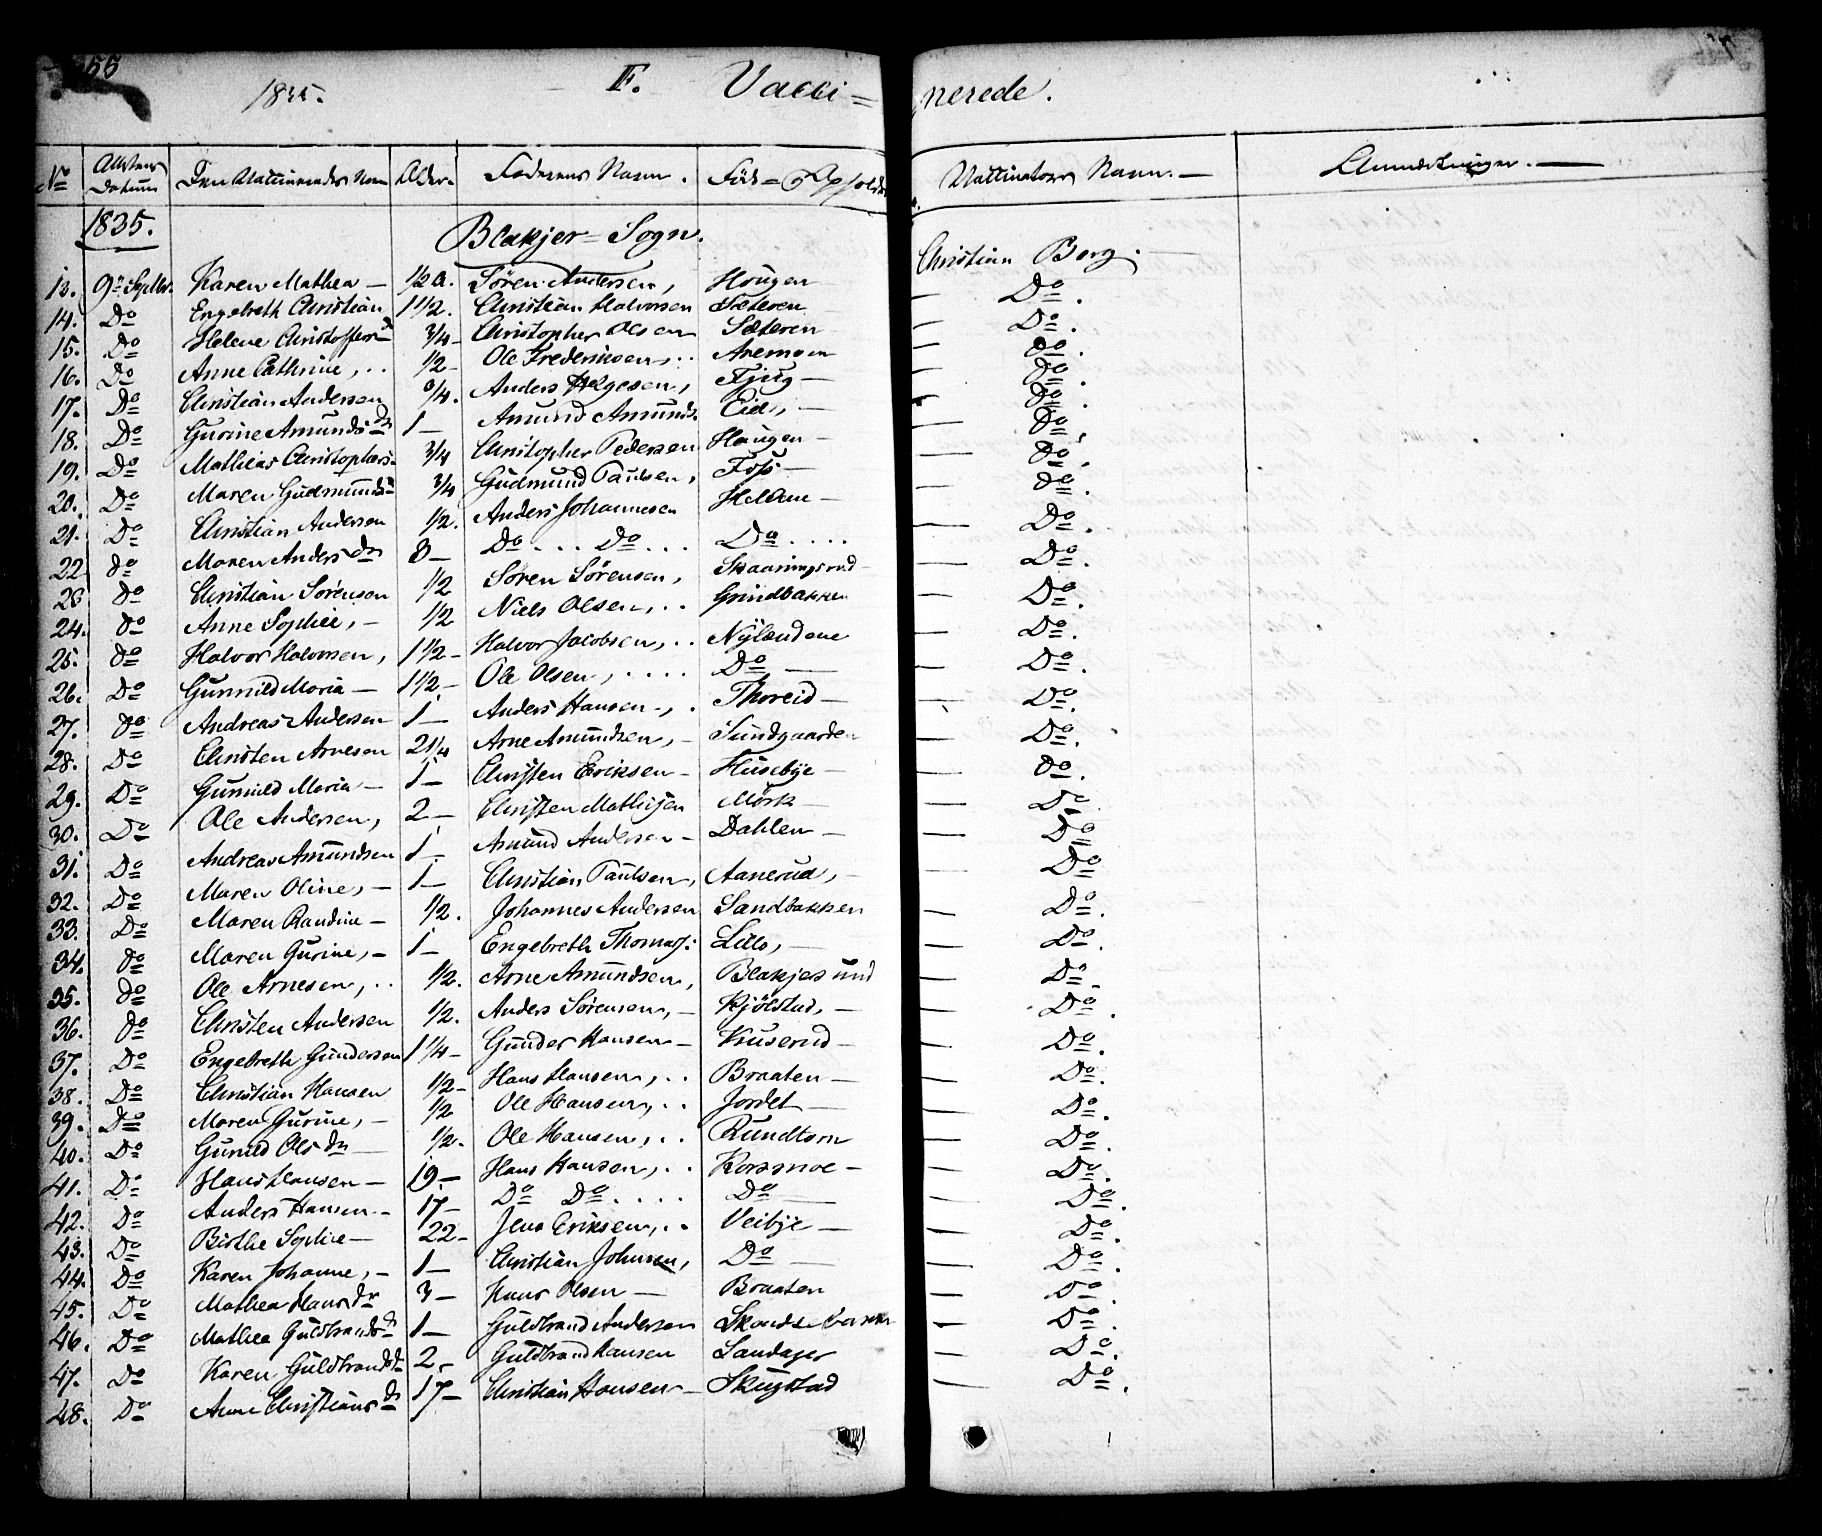 56
1835.
F. Vacci=nerede.
No Attestens Datum Den Vaccineredes Navn Alder. Faderens Navn. Føde= Vaccinators Navn.— Anmærkninger.—
1835. Blakjer=Sogn.
13. 9de Septbr. Karen Mathea — 1/2 a. Søren Andersen, Hougen Christian Borg.
14. Do Engebreth Christian 1 1/2. Christian Halvorsen Sæteren — Do.
15. Do Helene Christoffersdr 3/4 — Christopher Olsen Sæteren — Do.
16. Do Anne Cathrine, .. 1/2 — Ole Frederiksen, .. — Do.
17. Do Christian Andersen 3/4. Anders Helgesen, Fjug — — Do.
18. Do Gurine Amundsdr 1 — Amund Amunds. Eid, — — Do.
19. Do Mathias Christophers. 3/4 Christopher Pedersen Haugen — — Do.
20. Do Maren Gudmundsdr 3/4 Gudmund Paulsen, Foss — — Do.
21. Do Christian Andersen 1/2. Anders Johannesen — Do.
22 Do Maren Andersdr 3 — Do ... Do ... Do .... — Do.
23 Do Christian Sørensen 1/2 Søren Sørensen, Skaaringsrud — Do.
24. Do Anne Sophie, — 1/2 Niels Olsen, .. Grindbakken — Do.
25. Do Halvor Halvorsen, 1 1/2 — Halvor Jacobsen, .. Nylændene — Do.
26. Do Gunnild Maria — 1 1/2 — Ole Olsen, .... Do — — Do.
27. Do Andreas Andersen 1 — Anders Hansen, . Thoreid — — Do.
28. Do Christen Arnesen 2 1/4 Arne Amundsen, — Sundgaarden — Do.
29. Do Gunnild Maria — 1 — Christen Eriksen — Husebye — — Do.
30. Do Ole Andersen, 2 — Christen Mathisen Mørk — — Do
31. Do Andreas Amundsen 1 — Amund Andersen — Dahlen — — Do
32. Do Maren Oline, — 1 — Christian Paulsen, Aanerud, — — Do
33. Do Maren Randine — 1/2. Johannes Andersen Sandbakken — Do.
34. Do Maren Gurine, — 1 — Engebreth Thomas: Lillo, — — Do.
35. Do Ole Arnesen, .. 1/2. Arne Amundsen, Blakjersund — Do
36. Do Christen Andersen 1/2. Anders Sørensen, — Kjølstad, — — Do.
37. Do Engebreth Gundersen 1 1/4 — Gunder Hansen — Kuserud — — Do.
38. Do Christian Hansen 1/2 — Hans Hansen, .. Braaten — — Do.
39. Do Maren Gurine, — 1/2 Ole Hansen, .. Jordet — — Do.
40. Do Gunild Olsdr — 1/2. Ole Hansen, .. Rundtom — Do.
41. Do Hans Hansen — 19 — Hans Hansen, .. Korsmoe — — Do.
42. Do Anders Hansen — 17 — Do Do .... Do — — Do.
43. Do Birthe Sophie — 22 — Jens Eriksen, .. Veibye — — Do.
44. Do Karen Johanne, — 1 — Christian Johnsen, Do — — Do.
45. Do Mathea Hansdr 3 — Hans Olsen — Braaten — Do.
46. Do Mathea Guldbrandsdr 1 — Guldbrand Andersen — Do.
47. Do Karen Guldbrandsdr 2 — Guldbrand Hansen Sandager — Do.
48. Do Anne Christiansdr 17 — Christian Hansen — Skugstad — Do.